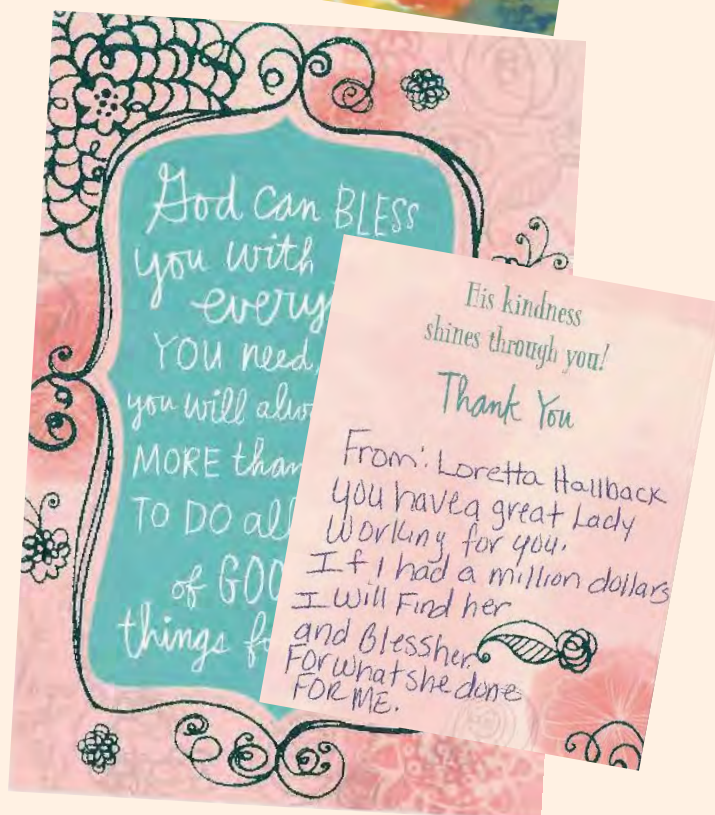 God can BLESS
you with
every
YOU need,
you will
MORE than
TO DO all
of
things
His kindness
shines through you!
Thank You
From: Loretta Hallback
you have a great Lady
Working for you.
If I had a million dollars
I will Find her
and Bless her.
For what she done
FOR ME.